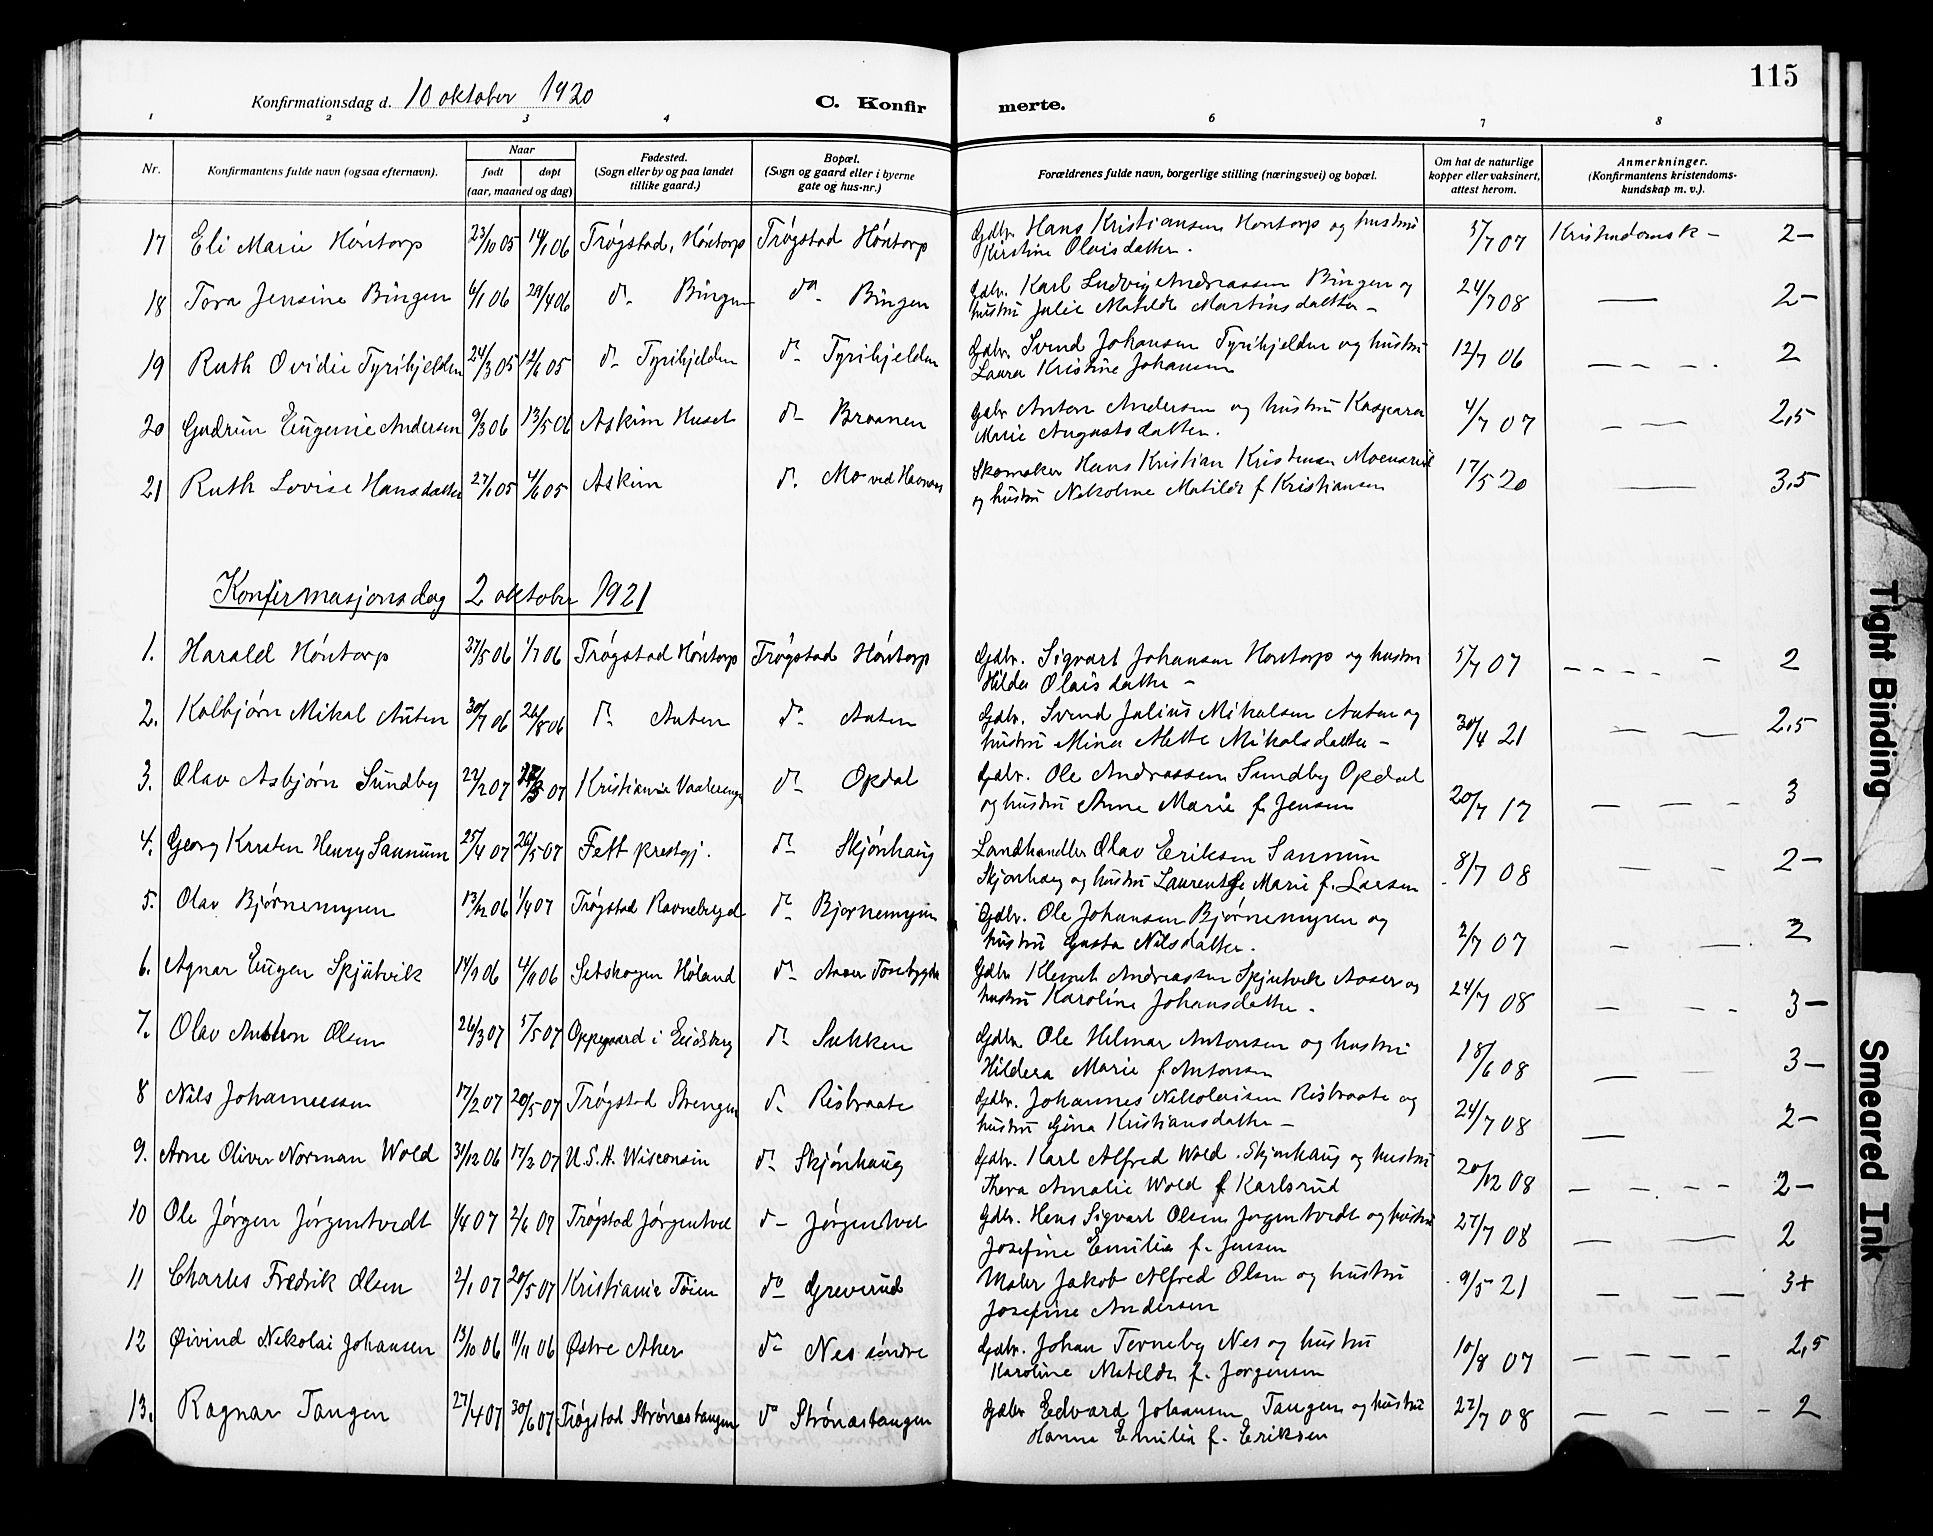 115
Konfirmationsdag d. 10 oktober 1920
C. Konfirmerte.
1 2 3 4 6 7 8
Nr. Konfirmantens fulde navn (ogsaa efternavn). Naar født døpt (aar, maaned og dag) Fødested. (Sogn eller by og paa landet tillike gaard.) Bopæl. (Sogn og gaard eller i byerne gate og hus-nr.) Forældrenes fulde navn, borgerlige stilling (næringsvei) og bopæl. Om hat de naturlige kopper eller vaksinert, attest herom. Anmerkninger. (Konfirmantens kristendomskundskap m. v.).
17 Eli Marie Høntorp 23/10 05 14/1 06 Trøgstad, Høntorp Trøgstad Høntorp Gdbr. Hans Kristiansen Høntorp og hustru 5/7 07 Kristendomsk – 2–
Kirstine Olaisdatter.
18 Tora Jensine Bingen 6/1 06 29/4 06 do Bingen do Bingen Gdbr. Karl Ludvig Andreassen Bingen og 24/7 08 — 2–
hustru Julie Matilde Martinsdatter –
19 Ruth Ovidie Tyrihjelden 24/3 05 12/6 05 do Tyrihjelden do Tyrihjelden Gdbr. Svend Johansen Tyrihjelden og hustru 12/7 06 — – – 2
Laura Kristine Johansen
20 Gudrun Eugenie Andersen 9/3 06 13/5 06 Askim Huset do Braanen Gdbr Anton Andersen og hustru Kaspara 4/7 07 – — 2,5
Marie Augustsdatter.
21 Ruth Lovise Hansdatter 27/1 05 4/6 05 Askim do Mo ved Havnaas Skomaker Hans Kristian Kristensen 17/5 20 — 3,5
og hustru Nikoline Matilde f Kristiansen
Konfirmasjonsdag 2 oktober 1921
1. Harald Høntorp 27/5 06 1/7 06 Trøgstad Høntorp Trøgstad Høntorp Gdbr. Sigvart Johansen Høntorp og hustru 5/7 07 – – – – – 2
Hilda Olaisdatter –
2. Kolbjørn Mikal Auten 30/7 06 26/8 06 do Auten do Auten Gdbr. Svend Julius Mikalsen Auten og 30/4 21 — — 2,5
hustru Mina Mette Mikalsdatter –
3. Olav Asbjørn Sundby 22/2 07 07 Kristiania Vaalerengen do Opdal Gdbr. Ole Andreassen Sundby Opdal 20/7 17 — — – 3
og hustru Anne Marie f. Jensen
4. Georg Karsten Henry Sannum 25/4 07 26/5 07 Fett prestgj. do Skjønhaug Landhandler Olav Eriksen Sannum 8/7 08 — — 2–
Skjønhaug og hustru Laurentse Marie f. Larsen
5. Olav Bjørnemyren 13/12 06 1/4 07 Trøgstad Ravneberget do Bjørnemyren Gdbr. Ole Johansen Bjørnemyren og 2/7 07 – — 2
hustru Gusta Nilsdatter.
6. Agnar Eugen Spjutvik 14/9 06 4/11 06 Setskogen Høland do Aaser Tosebygda Gdbr Klemet Andreassen Spjutvik Aaser og 24/7 08 — – — 3–
hustru Karoline Johansdatter.
7. Olav Anton Olsen 26/3 07 5/5 07 Oppgaard i Eidsberg do Sukken Gdbr. Ole Hilmar Antonsen og hustru 18/6 08 — — 3–
Hildera Marie f Antonsen
8 Nils Johannessen 17/2 07 20/5 07 Trøgstad Strengen do Risbraate Gdbr. Johannes Nikolaisen Risbraate og 24/7 08 — 2–
hustru Gina Kristiansdatter –
9. Arne Oliver Norman Wold 31/12 06 17/2 07 U.S.A. Wisconsin do Skjønhaug Gdbr. Karl Alfred Wold. Skjønhaug og hustru 20/12 08 – – – – 2–
Thora Amalie Wold f Karlsrud
10 Ole Jørgen Jørgentvedt 1/4 07 2/6 07 Trøgstad Jørgentvet do Jørgentvet Gdbr. Hans Sigvart Olsen Jørgentvedt og hustru 27/7 08 — — 2
Josefine Emilie f. Jensen
11 Charles Fredrik Olsen 2/1 07 20/5 07 Kristiania Tøien do Greverud Maler Jakob Alfred Olsen og hustru 9/5 21 – — — 3+
Josefine Andersen
12 Øivind Nikolai Johansen 13/10 06 11/11 06 Østre Aker do Nes søndre Gdbr. Johan Terneby Nes og hustru 10/8 07 – – – – 2,5
Karoline Matilde f. Jørgensen
13. Ragnar Tangen 27/4 07 30/6 07 Trøgstad Strønastangen do Strønastangen Gdbr Edvard Johansen Tangen og hustru 22/7 08 — – – – 2
Hanna Emilie f. Eriksen
Tight Binding
Smeared Ink